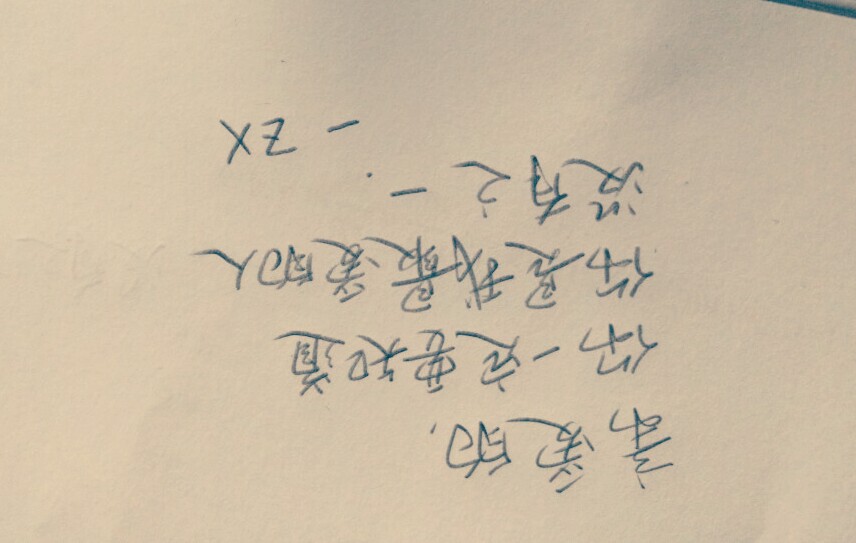 亲爱的,
你一定要知道
你是我最爱的人
没有之一.
- ZX